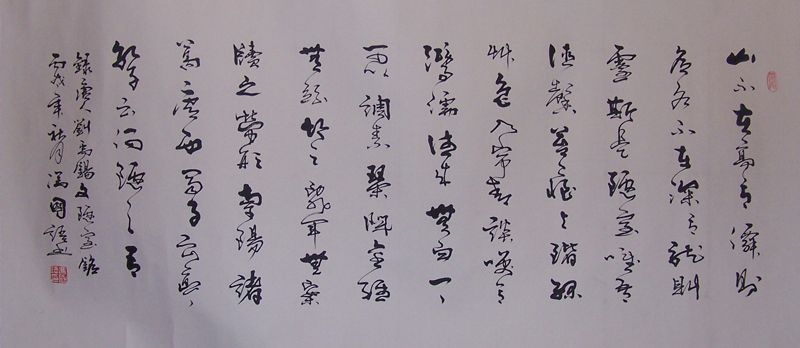 山不在高有僊則
名水不在深有龍則
靈斯是陋室唯吾
德馨苔痕上階綠
艸色入簾青談笑有
鴻儒往來無白丁
可以調素琴閱金經
無絲竹之亂耳無案
牘之勞形南陽諸
葛廬西蜀子雲亭
孔子云何陋之有
錄唐人劉禹錫文陋室銘
丙戌年秋月馮國